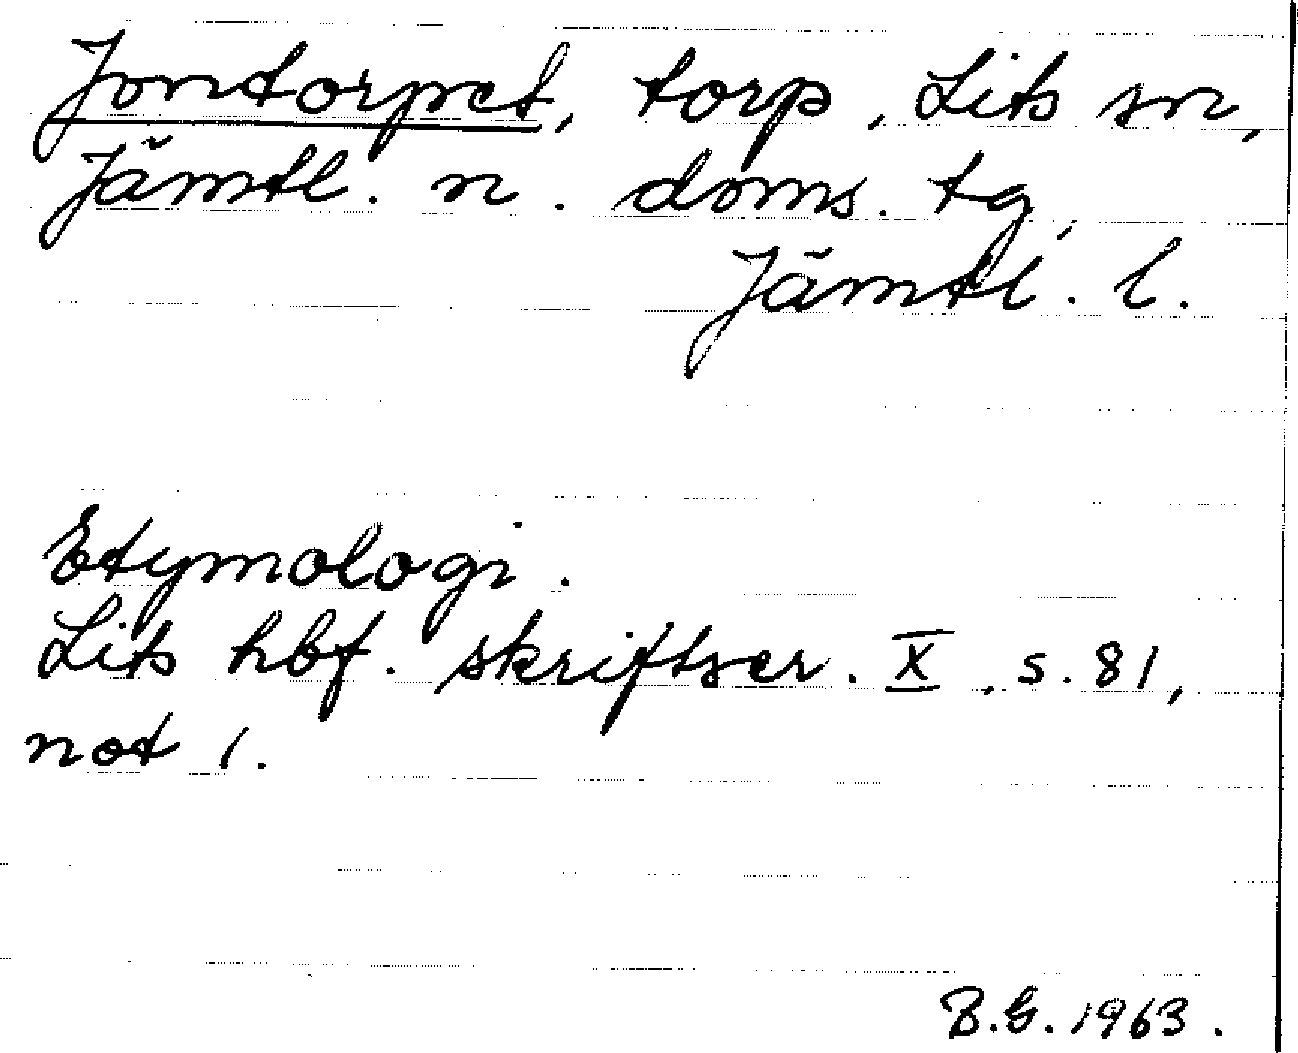 Jontorpet, torp, Lits sn,
Jämtl. n. doms. tg,
Jämtl. l.
Etymologi.
Lits hbf. skriftser. X, s. 81,
not 1.
B.G. 1963.